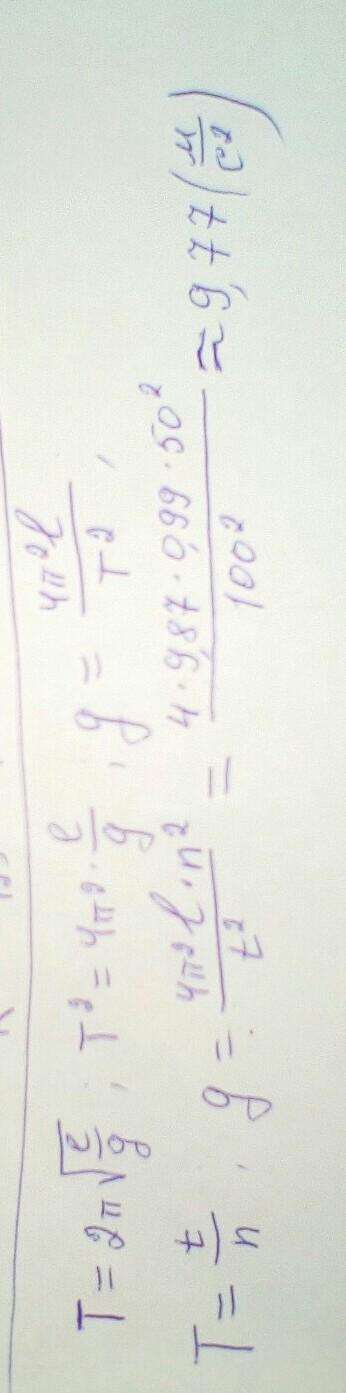 T = 2π√(l/g), T² = 4π² · l/g, g = 4π²l/T²,
T = t/n, g = 4π²l·n²/t² = 4·9,87·0,99·50²/100² ≈ 9,77 (м/с²)